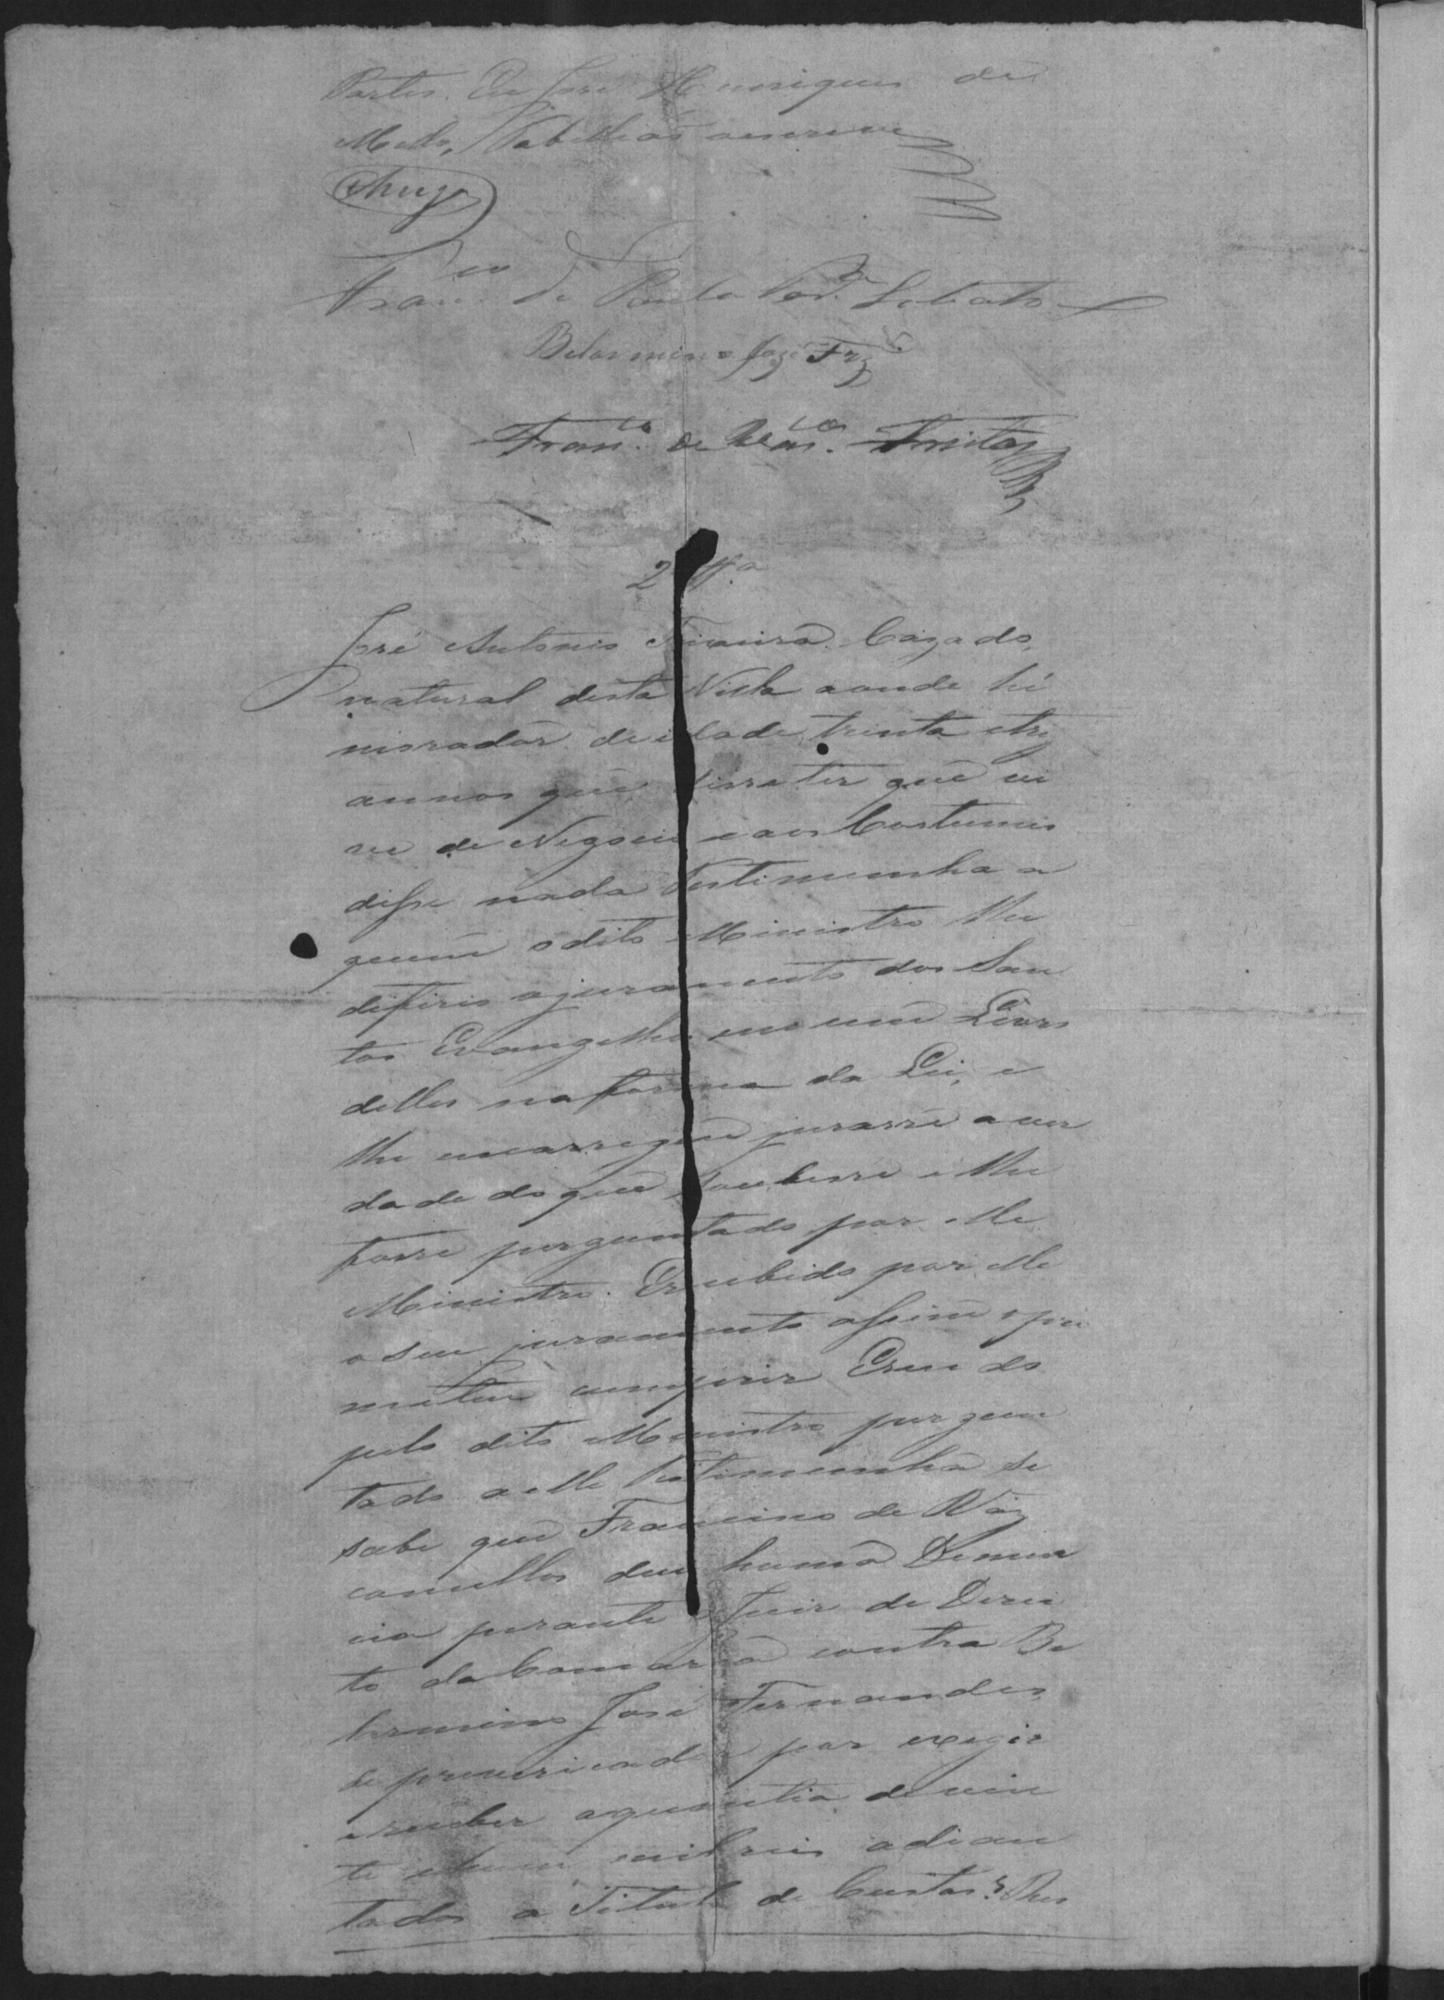 Partes. Eu José Henriques de
Mello, Tabelliaõ escrevi
Chuza
Fran.co de Paula Lobato
Belarmino José Frz
Fran.co de Vas.cos Freitas
2ª
José Antonio Teixeira Cazado,
natural desta Villa aonde hé
morador de idade trinta etrez
annos que disse ter que vi
ve de Negocio eaos Costumes
disse nada Testimunha a
quem odito Ministro lhe
difirio ojuramento dos San
tos Evangelhos em um Livro
delles naforma da Lei, e
lhe encarregou jurasse aver
dade doque soubesse e lhe
fosse perguntado por elle
Ministro. Erecebido por elle
oseu juramento assim opro
meteu cumprir Esendo
pelo dito Ministro pergun
tado aelle Testimunha se
sabe que Francisco de Vas
concellos deu huma Denun
cia perante o Juiz de Direi
to da Comarca contra Be
larmino José Fernandes
de prevaricador por exegir
e receber aquantia de vin
te ehum mil reis adian
tados a Titulo de Custas? Res